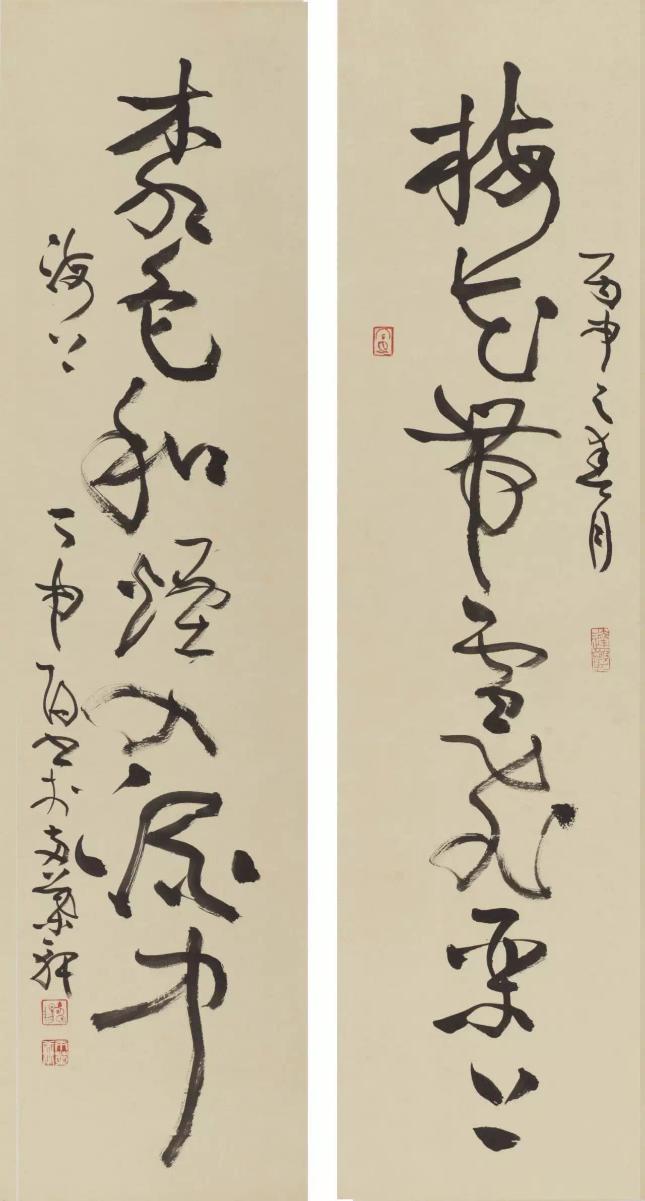 丙申之春月
梅花帶雪飛琴上
柳色和煙入酒中
海上 丁申陽書於軒